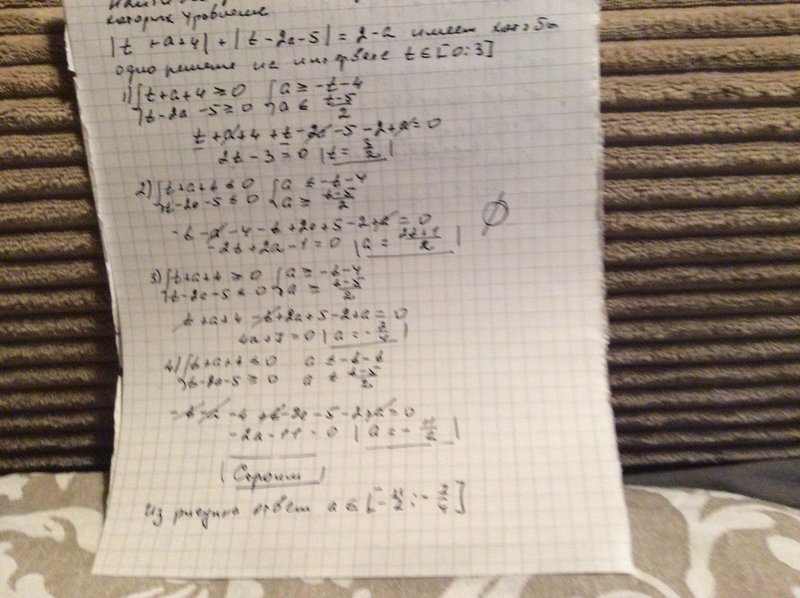 которых уравнение
|t + a + 4| + |t - 2a - 5| = 2 - a имеет хотя бы
одно решение на t ∈ [0; 3]
1) { t + a + 4 ≥ 0 { a ≥ -t - 4
t - 2a - 5 ≥ 0 a ≤ (t-5)/2
t + a + 4 + t - 2a - 5 - 2 + a = 0
2t - 3 = 0 | t = 3/2 |
2) { t + a + 4 ≤ 0 { a ≤ -t - 4
t - 2a - 5 ≤ 0 a ≥ (t-5)/2
-t - a - 4 - t + 2a + 5 - 2 + a = 0 ∅
-2t + 2a - 1 = 0 | a = (2t+1)/2 |
3) { t + a + 4 ≥ 0 { a ≥ -t - 4
t - 2a - 5 ≤ 0 a ≥ (t-5)/2
t + a + 4 - t + 2a + 5 - 2 + a = 0
4a + 7 = 0 | a = -7/4 |
4) { t + a + 4 ≤ 0 a ≤ -t - 4
t - 2a - 5 ≥ 0 a ≤ (t-5)/2
-t - a - 4 + t - 2a - 5 - 2 + a = 0
-2a - 11 = 0 | a = -11/2 |
| Строим |
Из рисунков ответ a ∈ [-11/2; -7/4]